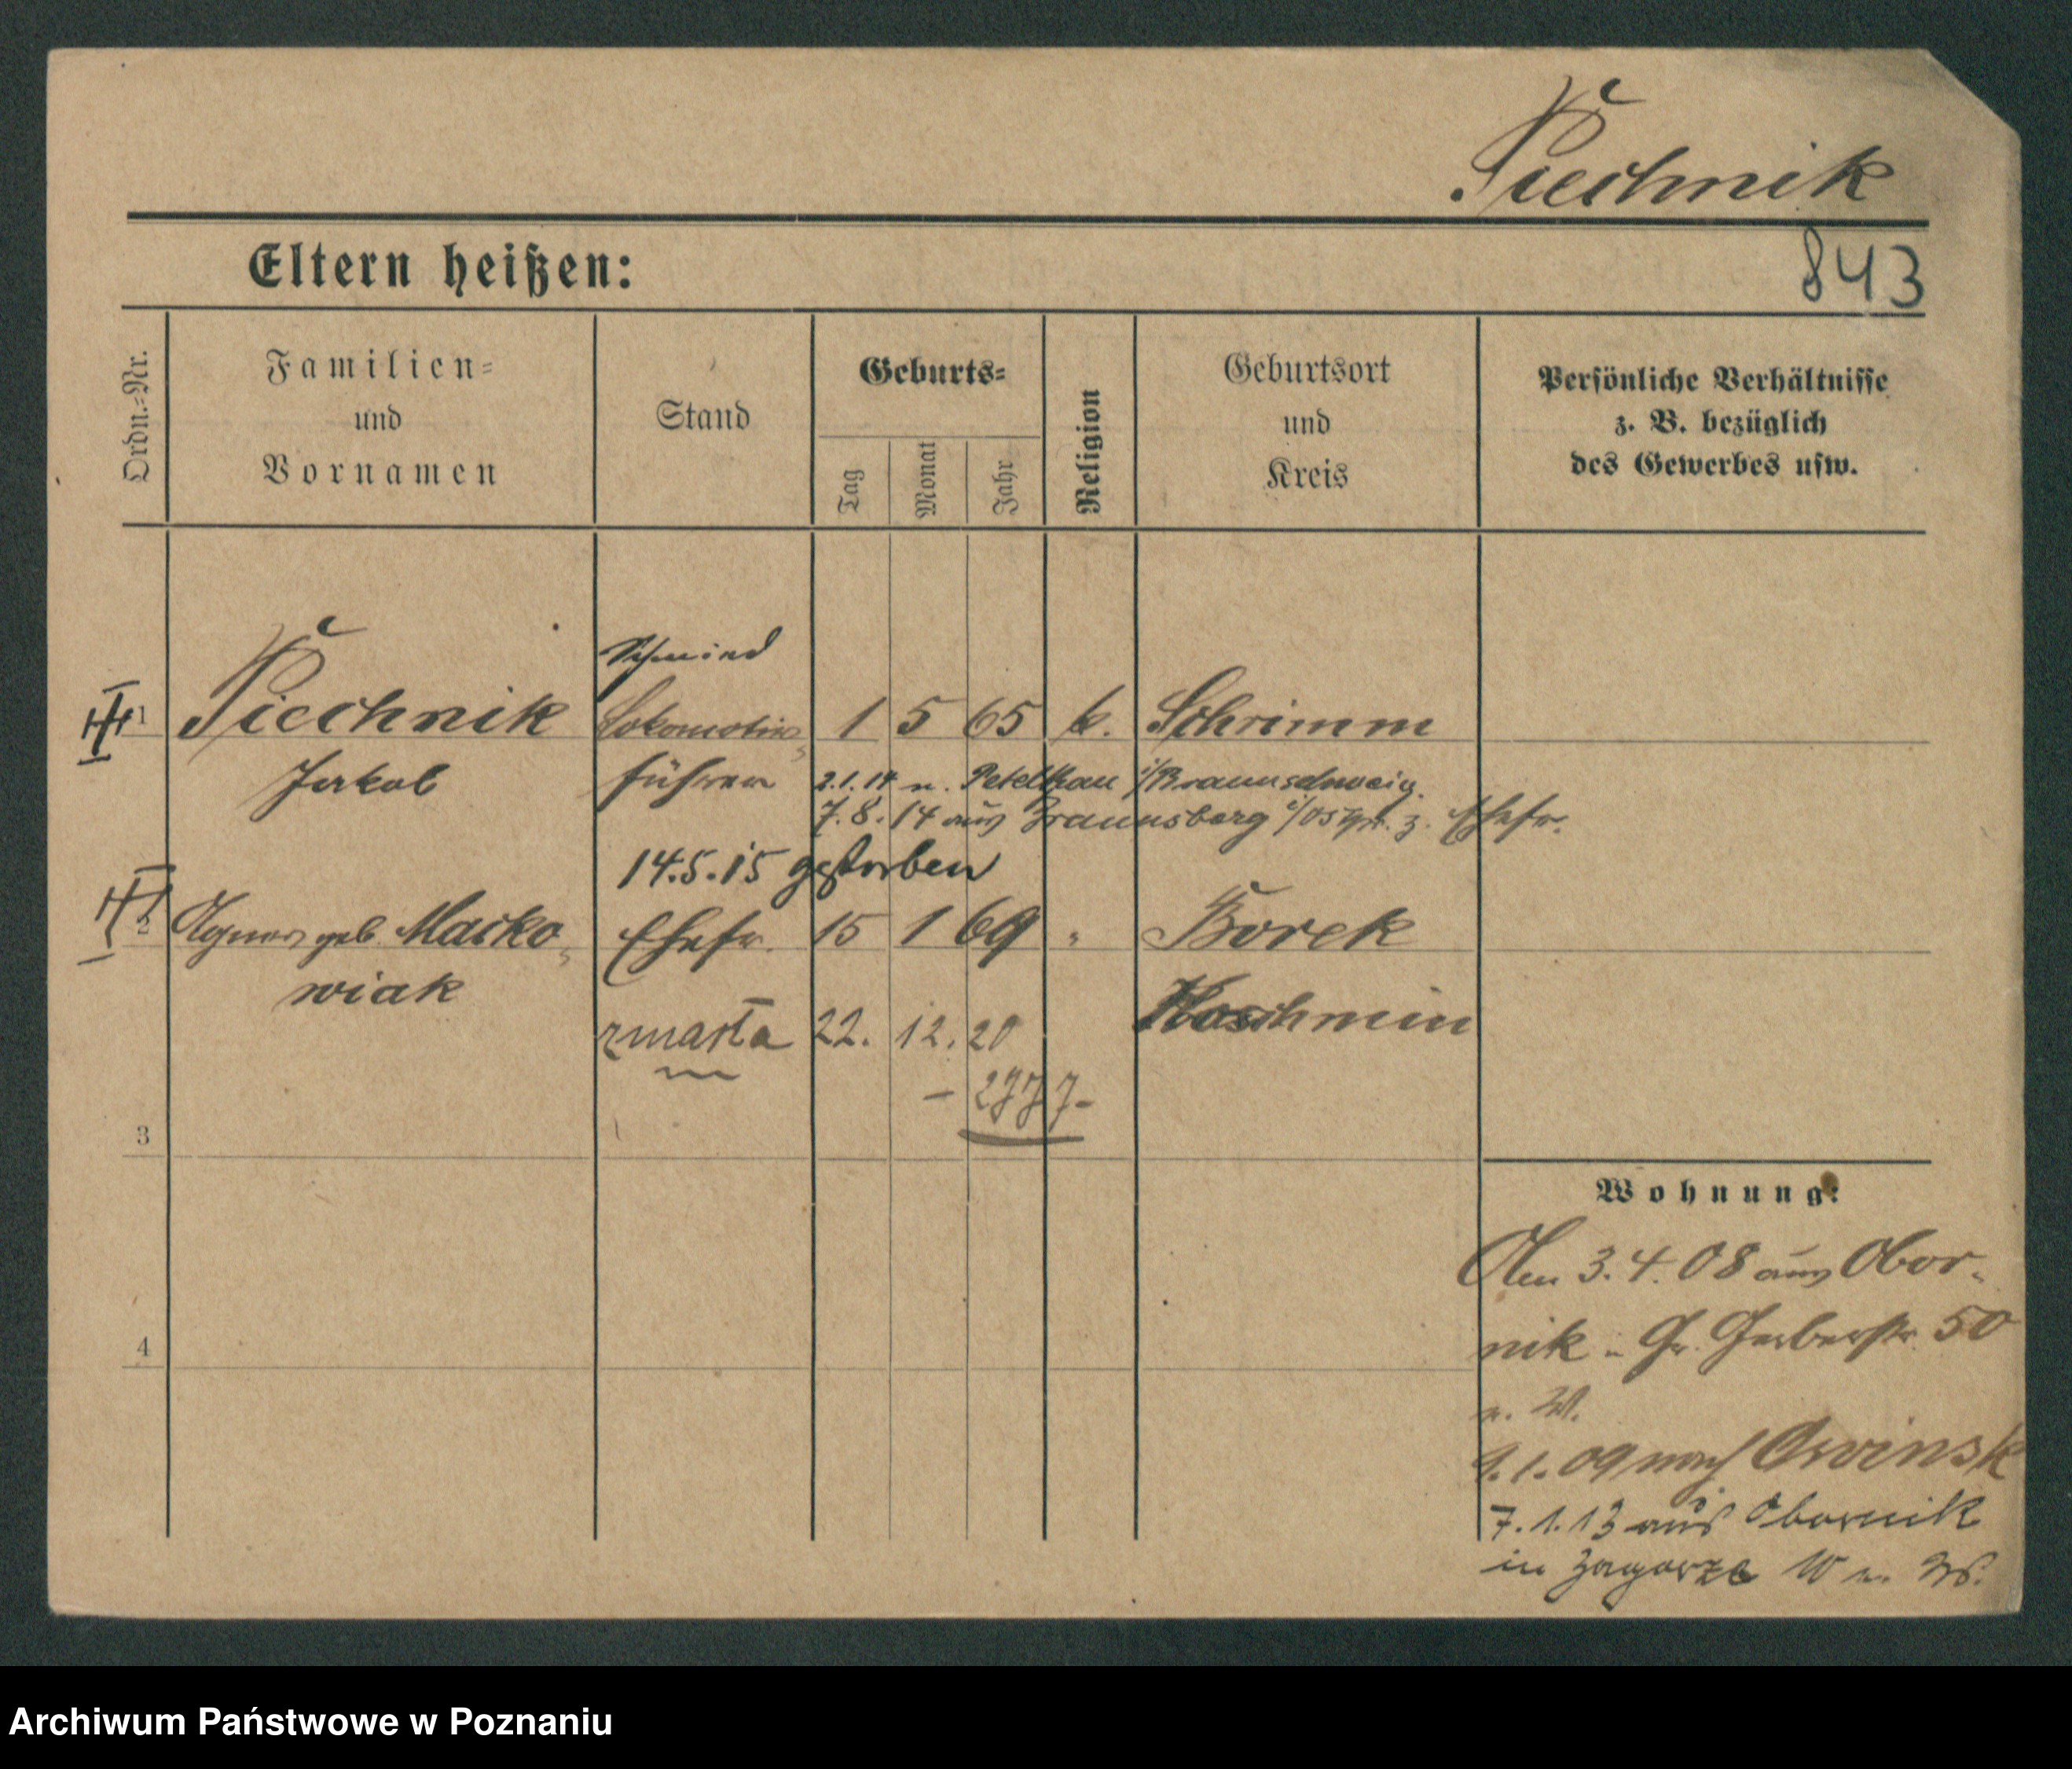 Piechnik
Eltern heißen:
843
Ordn.-Nr.
Familien-
und
Vornamen
Stand
Geburts-
Tag
Monat
Jahr
Religion
Geburtsort
und
Kreis
Persönliche Verhältnisse
z. B. bezüglich
des Gewerbes usw.
Schmied
1 Piechnik Lokomotiv- 1 5 65 k. Schrimm
Jakob führer
2.1.14 n. i/Braunschweig.
7.8.14 aus Braunsberg i/Ostpr. z. Ehefr.
14.5.15 gestorben
2 Agnes geb. Maćko- Ehefr. 15 1 69 " Borek
wiak
Koschmin
zmarła 22. 12. 20
- 2777 -
3
4
Wohnung:
Am 3.4.08 aus Obor-
nik - Gr. Gerberstr. 50
n. W.
9.1.09 nach Owinsk
7.1.13 aus Obornik
in Zagorze 10 n. W.
Archiwum Państwowe w Poznaniu